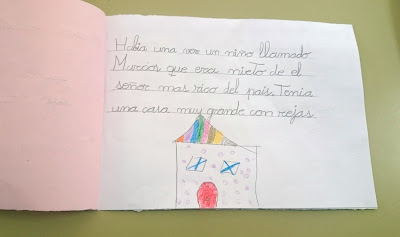 Había una vez un niño llamado
Marcos que era nieto de el
señor mas rico del país. Tenia
una casa muy grande con rejas